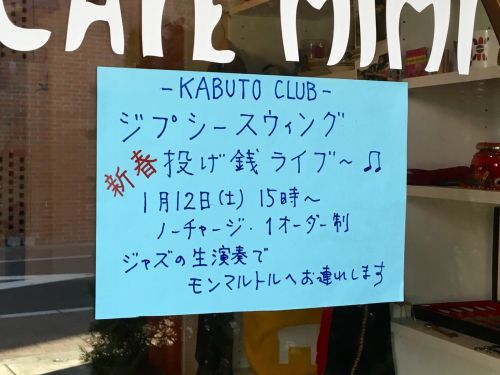 CAFE MIMI
-KABUTO CLUB-
ジプシースウィング
新春 投げ銭ライブ〜♫
1月12日(土) 15時〜
ノーチャージ・1オーダー制
ジャズの生演奏で
モンマルトルへお連れします